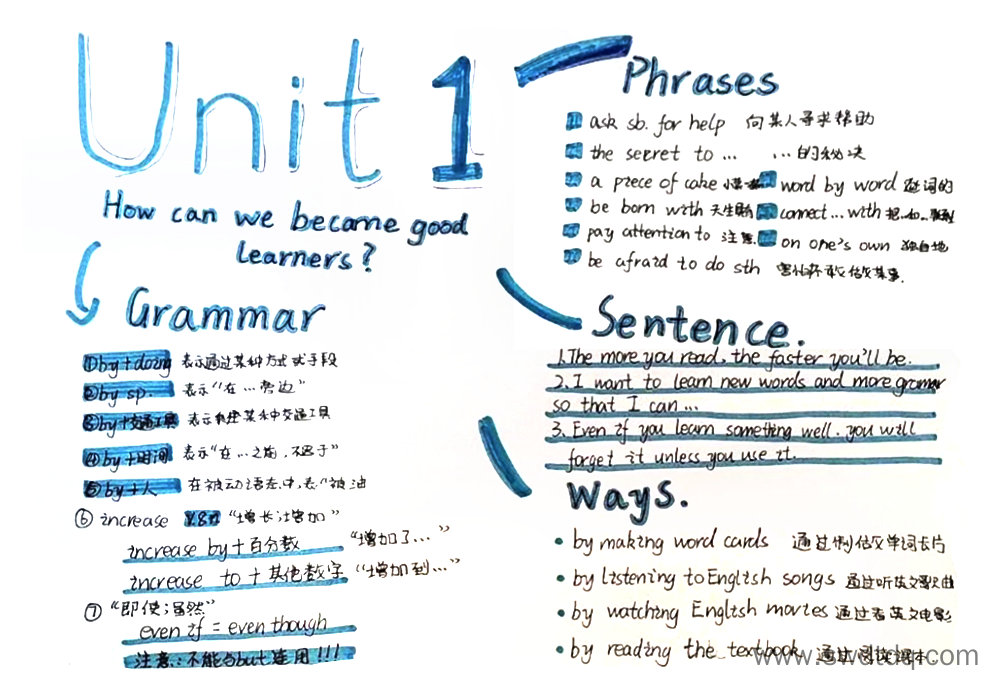 Unit 1
How can we become good
learners?
Grammar
①by+doing 表示通过某种方式或手段
②by sp. 表示"在…旁边"
③by+交通工具 表示乘某种交通工具
④by+时间 表示"在…之前,不迟于"
⑤by+人 在被动语态中,表"被 油
⑥ increase "增长;增加"
increase by+百分数 "增加了…"
increase to+其他数字 "增加到…"
⑦ "即使;虽然"
even if = even though
注意:不能与but连用!!!
Phrases
ask sb. for help 向某人寻求帮助
the secret to … …的秘决
a piece of cake word by word 逐词的
be born with 天生 connect…with 把…和…
pay attention to 注意 on one's own 独自地
be afraid to do sth 害怕 做某事.
Sentence.
1.The more you read, the faster you'll be.
2. I want to learn new words and more grammar
so that I can …
3. Even if you learn something well, you will
forget it unless you use it.
Ways.
by making word cards 通过制做单词卡片
by listening to English songs 通过听英文歌曲
by watching English movies 通过看英文电影
by reading the textbook 通过阅读课本.